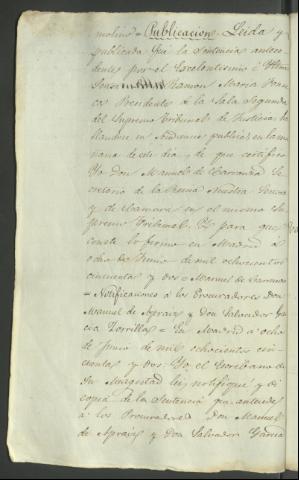 molino = Publicacion = Leida y
publicada fué la Sentencia antece-
dente por el Excelentisimo é Ilmo
Señor Don Ramon Maria Fonse-
cas Presidente de la Sala Segunda
del Supremo Tribunal de Justicia ha-
llandose en Audiencia publica en la ma-
ñana de este dia, de que certifico
Yo Don Manuel de Carranza Se-
cretario de la Reina Nuestra Señora
y de Camara en el mismo Su-
premo Tribunal. Y para que
conste lo firmo en Madrid á
ocho de Junio de mil ochocientos
cincuenta y dos = Manuel de Carranza
= Notificaciones á los Procuradores Don
Manuel de Apraiz y Don Salvador Gar-
cia Torrillas = En Madrid á ocho
de Junio de mil ochocientos cin-
cuenta y dos: Yo el Escribano de
Su Magestad lei, notifique y di
copia de la Sentencia que antecede
á los Procuradores Don Manuel
de Apraiz y Don Salvador Garcia